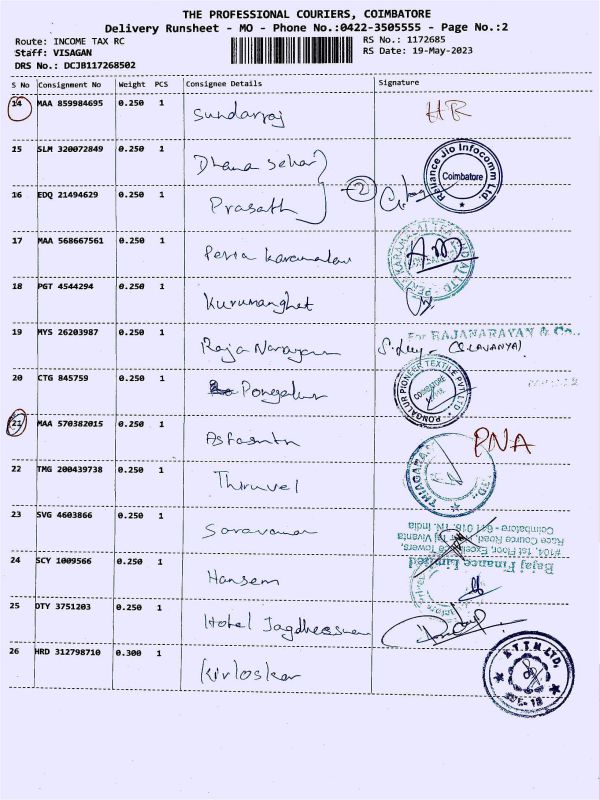 THE PROFESSIONAL COURIERS, COIMBATORE
Delivery Runsheet - MO - Phone No.:0422-3505555 - Page No.:2
Route: INCOME TAX RC
RS No.: 1172685
Staff: VISAGAN
RS Date: 19-May-2023
DRS No.: DCJB117268502
S No Consignment No Weight PCS Consignee Details Signature
14 MAA 859984695 0.250 1 Sundarraj HR
15 SLM 320072849 0.250 1 Dhana Sekar
Reliance Jio Infocomm Ltd.
Coimbatore
16 EDQ 21494629 0.250 1 Prasath
2
17 MAA 568667561 0.250 1 Peria Karamalai
18 PGT 4544294 0.250 1 Kurumanghat
19 MYS 26203987 0.250 1 Raja Narayan
For RAJANARAYAN & Co.,
(S. LAVANYA)
20 CTG 845759 0.250 1 Pongalur
PONGALUR PIONEER TEXTILE PVT LTD
COIMBATORE
21 MAA 570382015 0.250 1 PNA
22 TMG 200439738 0.250 1 Thiruvel
23 SVG 4603866 0.250 1 Saravanan
Bajaj Finance Limited
#104, 1st Floor, Excellency Towers,
Race Cource Road, Taj Vivanta
Coimbatore - 641 018. TN. India
24 SCY 1009566 0.250 1 Hansem
25 OTY 3751203 0.250 1 Hotel Jagdheeswara
26 HRD 312798710 0.300 1 Kirloskar
K.T.T.M. LTD.
CBE-18